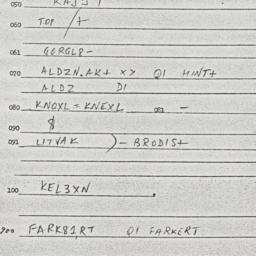 050
060 TOP /t
061 GORGL8-
070 ALDZN.AKt XY QI HINTt
ALDZ DI
080 KNOXL = KNEXL 081 -
090 $
091 LITVAK )- BRODISt
100 KEL3XN .
900 FARK81,RT QI FARKERT